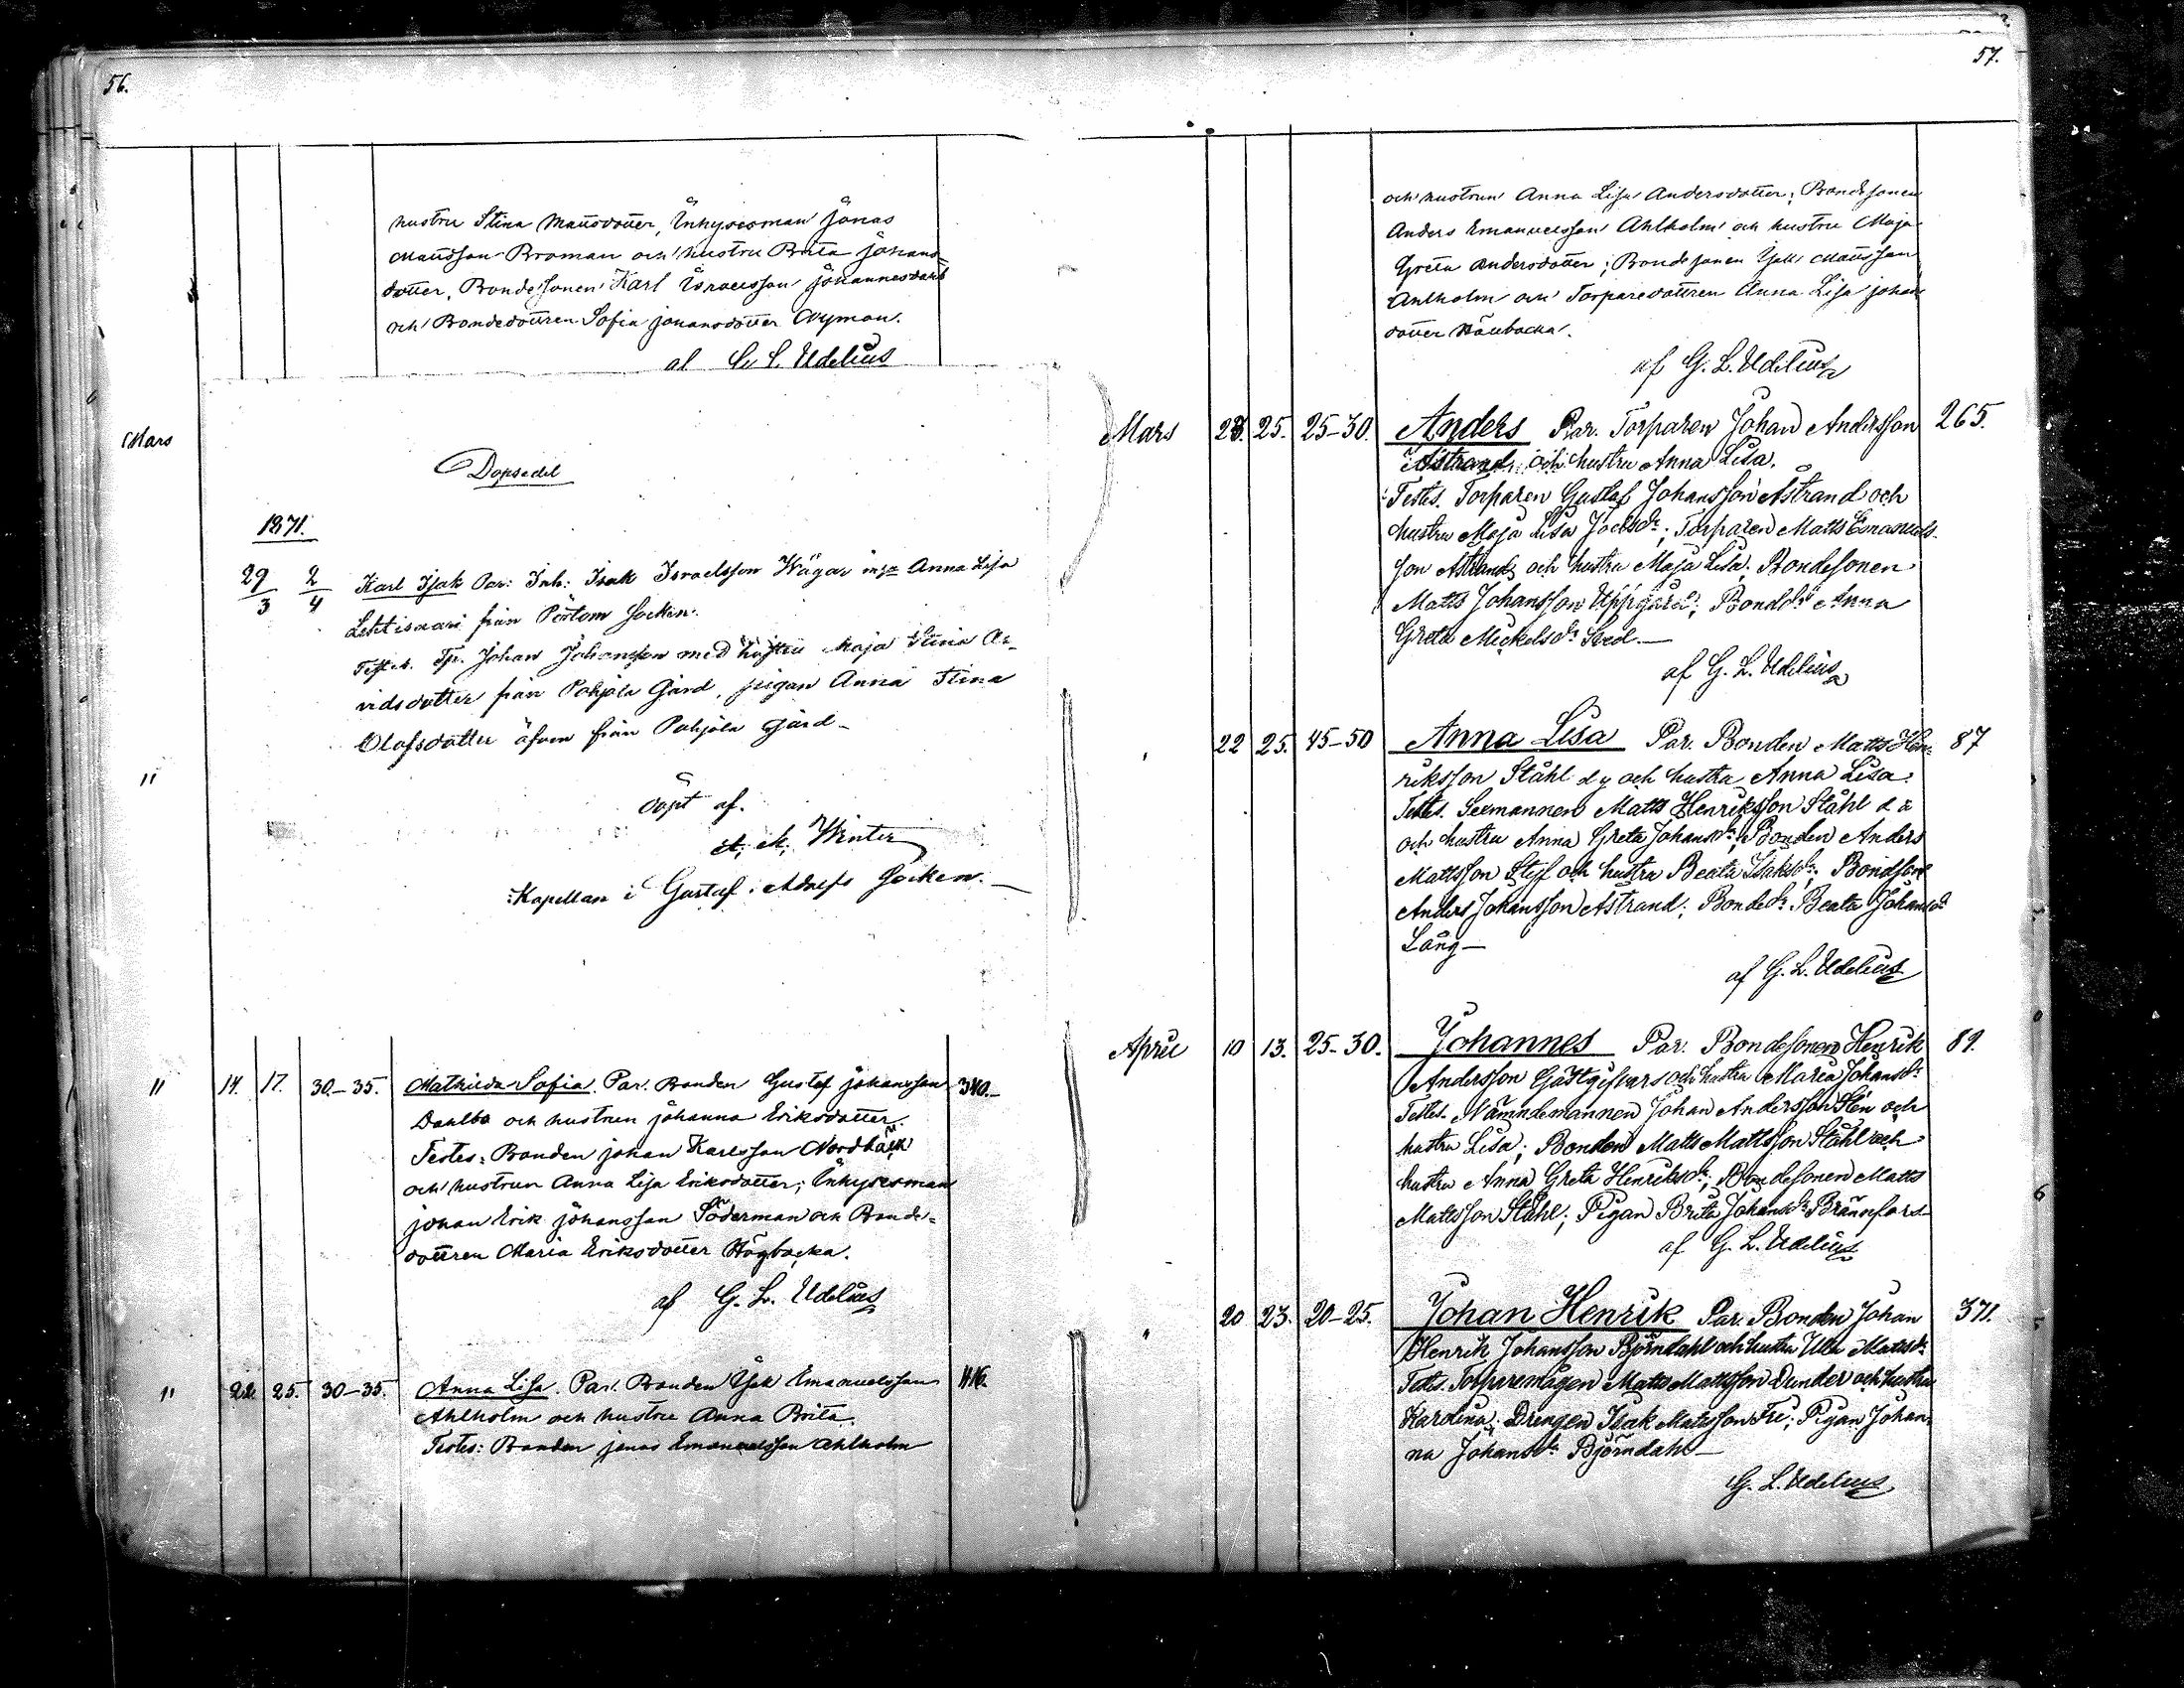 56.
hustru Stina Mattsdotter, Inhysesman Jonas
Mattsson Broman och hustru Brita Johans=
dotter, Bondesonen Karl Israelsson Johannesdahl
och Bondedottren Sofia Johansdotter Nyman.
af G. L. Udelius
Mars
Dopsedel
1871.
29/3 2/4 Karl Isak Par: Inh: Isak Israelsson Wägar m/h Anna Lisa
från Pörtom Socken.
Test. Tp. Johan Johansson med hustru Maja Stina Ar-
vidsdotter från Pohjola Gård, pigan Anna Stina
Olofsdotter äfven från Pohjola gård-
döpt af.
Winter
Kapellan i Gustaf Adolfs Socken.
" 14. 17. 30-35. Mathilda Sofia. Par. Bonden Gustaf Johansson 340.
Dahlbo och hustrun Johanna Eriksdotter.
Testes: Bonden Johan Karlsson Nordbäck
och hustrun Anna Lisa Eriksdotter; Inhysesman
Johan Erik Johansson Söderman och Bonde=
dottren Maria Eriksdotter Högbacka.
af G. L. Udelius
" 22. 25. 30-35. Anna Lisa. Par. Bonden Isak Emanuelsson
Ahlholm och hustru Anna Brita.
Testes: Bonden Jonas Emanuelsson Ahlholm
57.
och hustrun Anna Lisa Andersdotter; Bondesonen
Anders Emanuelsson Ahlholm och hustru Maja
Greta Andersdotter; Bondesonen Isak Mattsson
Ahlholm och Torparedottren Anna Lisa Johans
dotter
af G. L. Udelius
Mars 23. 25. 25-30. Anders Par. Torparen Johan Andersson 265.
Åstrand, och hustru Anna Lisa.
Testes. Torparen Gustaf Johansson Åstrand och
hustru Maja Lisa Joelsdr; Torparen Matts Emanuels-
son Åstrand och hustru Maja Lisa; Bondesonen
Matts Johansson Uppgård; Bondedr Anna
Greta Mickelsdr
af G. L. Udelius
" 22 25. 45-50 Anna Lisa Par. Bonden Matts Hen= 87
riksson Ståhl d y och hustru Anna Lisa.
Testes. Sexmannen Matts Henriksson Ståhl d ä
och hustru Anna Greta Johansdr; Bonden Anders
Mattsson Styf och hustru Beata Isaksdr; Bondson
Anders Johansson Åstrand; Bondedr. Beata Johansdr
Lång-
af G. L. Udelius
April 10 13. 25-30. Johannes Par. Bondesonen Henrik 89.
Andersson Gästgifvars och hustru Maria Johansdr
Testes. Nämndemannen Johan Andersson Sten och
hustru Lisa; Bonden Matts Mattsson Ståhl och
hustru Anna Greta Henriksdr; Bondesonen Matts
Mattsson Ståhl; Pigan Brita Johansdr Brännfors-
af G. L. Udelius
" 20 23. 20-25. Johan Henrik Par. Bonden Johan 371.
Henrik Johansson Björndahl och hustru Ulla Mattsdr
Testes. Torparemågen Matts Mattsson Dunder och hustru
Karolina; Drengen Isak Mattsson Fri; Pigan Johan=
na Johansdr Björndahl-
G. L. Udelius